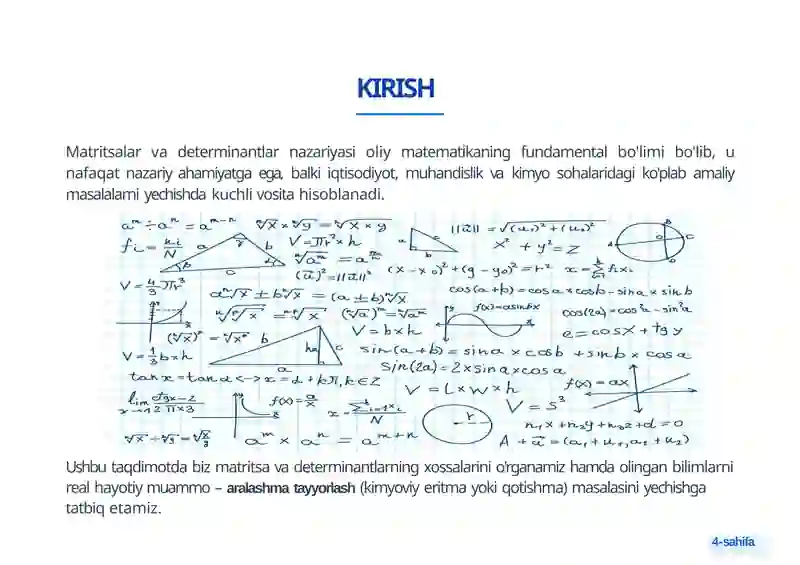 KIRISH
Matritsalar va determinantlar nazariyasi oliy matematikaning fundamental bo'limi bo'lib, u
nafaqat nazariy ahamiyatga ega, balki iqtisodiyot, muhandislik va kimyo sohalaridagi ko'plab amaliy
masalalarni yechishda kuchli vosita hisoblanadi.
a^m ÷ a^n = a^{m-n}
V = πr² × h
||u|| = √(u₁)² + (u₂)²
x² + y² = z
fi = ni/N
V = 4/3 πr³
(x - x₀)² + (y - y₀)² = r²
cos(a+b) = cosa × cosb - sina × sinb
f(x) = asinbx
cos(2a) = cos²a - sin²a
V = b × h
e = cosx + tgy
V = 1/3 b × h
sin(a+b) = sina × cosb + sinb × cosa
sin(2a) = 2 × sina × cosa
V = L × w × h
f(x) = ax
f(x) = a/x
V = s³
a^m × a^n = a^{m+n}
Ushbu taqdimotda biz matritsa va determinantlarning xossalarini o'rganamiz hamda olingan bilimlarni
real hayotiy muammo – aralashma tayyorlash (kimyoviy eritma yoki qotishma) masalasini yechishga
tatbiq etamiz.
4-sahifa